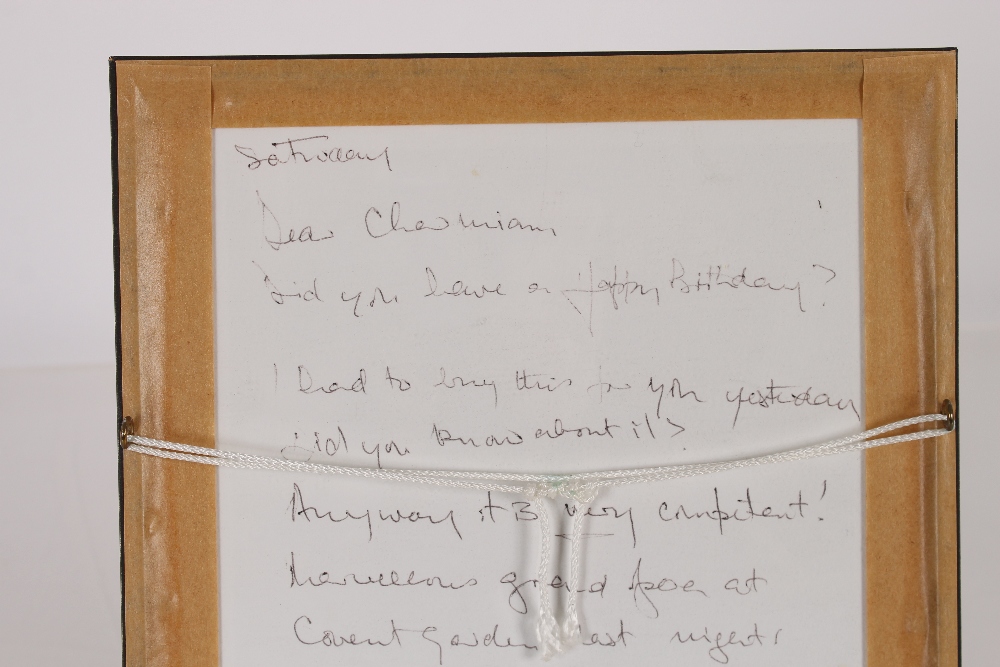 Saturday
Dear Charmian,
Did you have a Happy Birthday?
I had to buy this for you yesterday
Did you know about it?
Anyway it is very competent!
Marvellous grand at
Covent Garden last night!